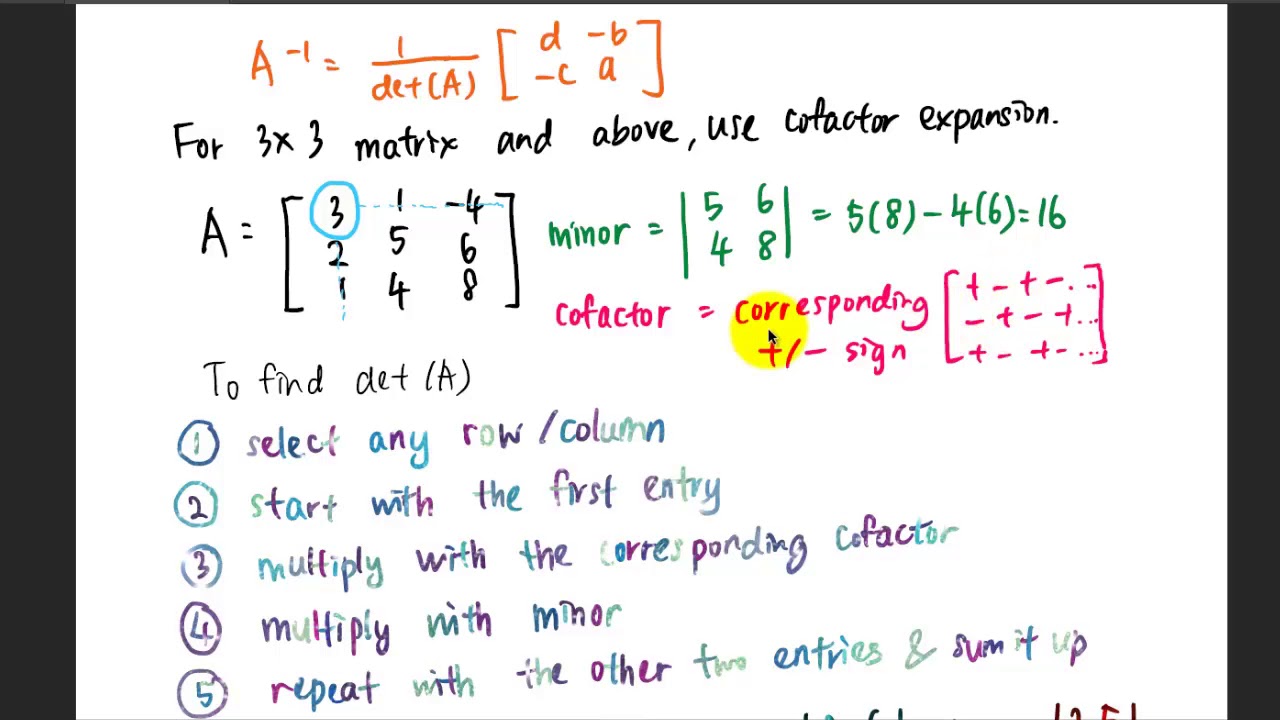 A⁻¹ = 1/det(A) [d -b
-c a]
For 3x3 matrix and above, use cofactor expansion.
A = [3 1 -4
2 5 6
1 4 8]
minor = |5 6
4 8| = 5(8) - 4(6) = 16
cofactor = corresponding
+/- sign
[+ - + - ...
- + - + ...
+ - + - ...]
To find det(A)
① select any row/column
② start with the first entry
③ multiply with the corresponding cofactor
④ multiply with minor
⑤ repeat with the other two entries & sum it up